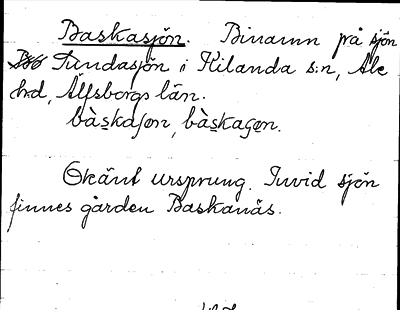 Baskasjön. Binamn på sjön
Tundasjön i Kilanda s:n, Ale
hd, Älfsborgs län.
bàskaʃøn, bàskaʃøn.
Okänt ursprung. Invid sjön
finnes gården Baskanäs.